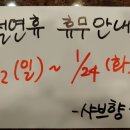 설연휴 휴무안내
2(일)~ 1/24(화
-샤브향